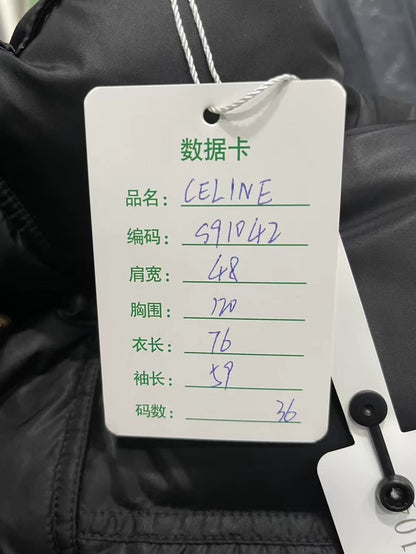 数据卡
品名: CELINE
编码: S91042
肩宽: 48
胸围: 120
衣长: 76
袖长: 59
码数: 36